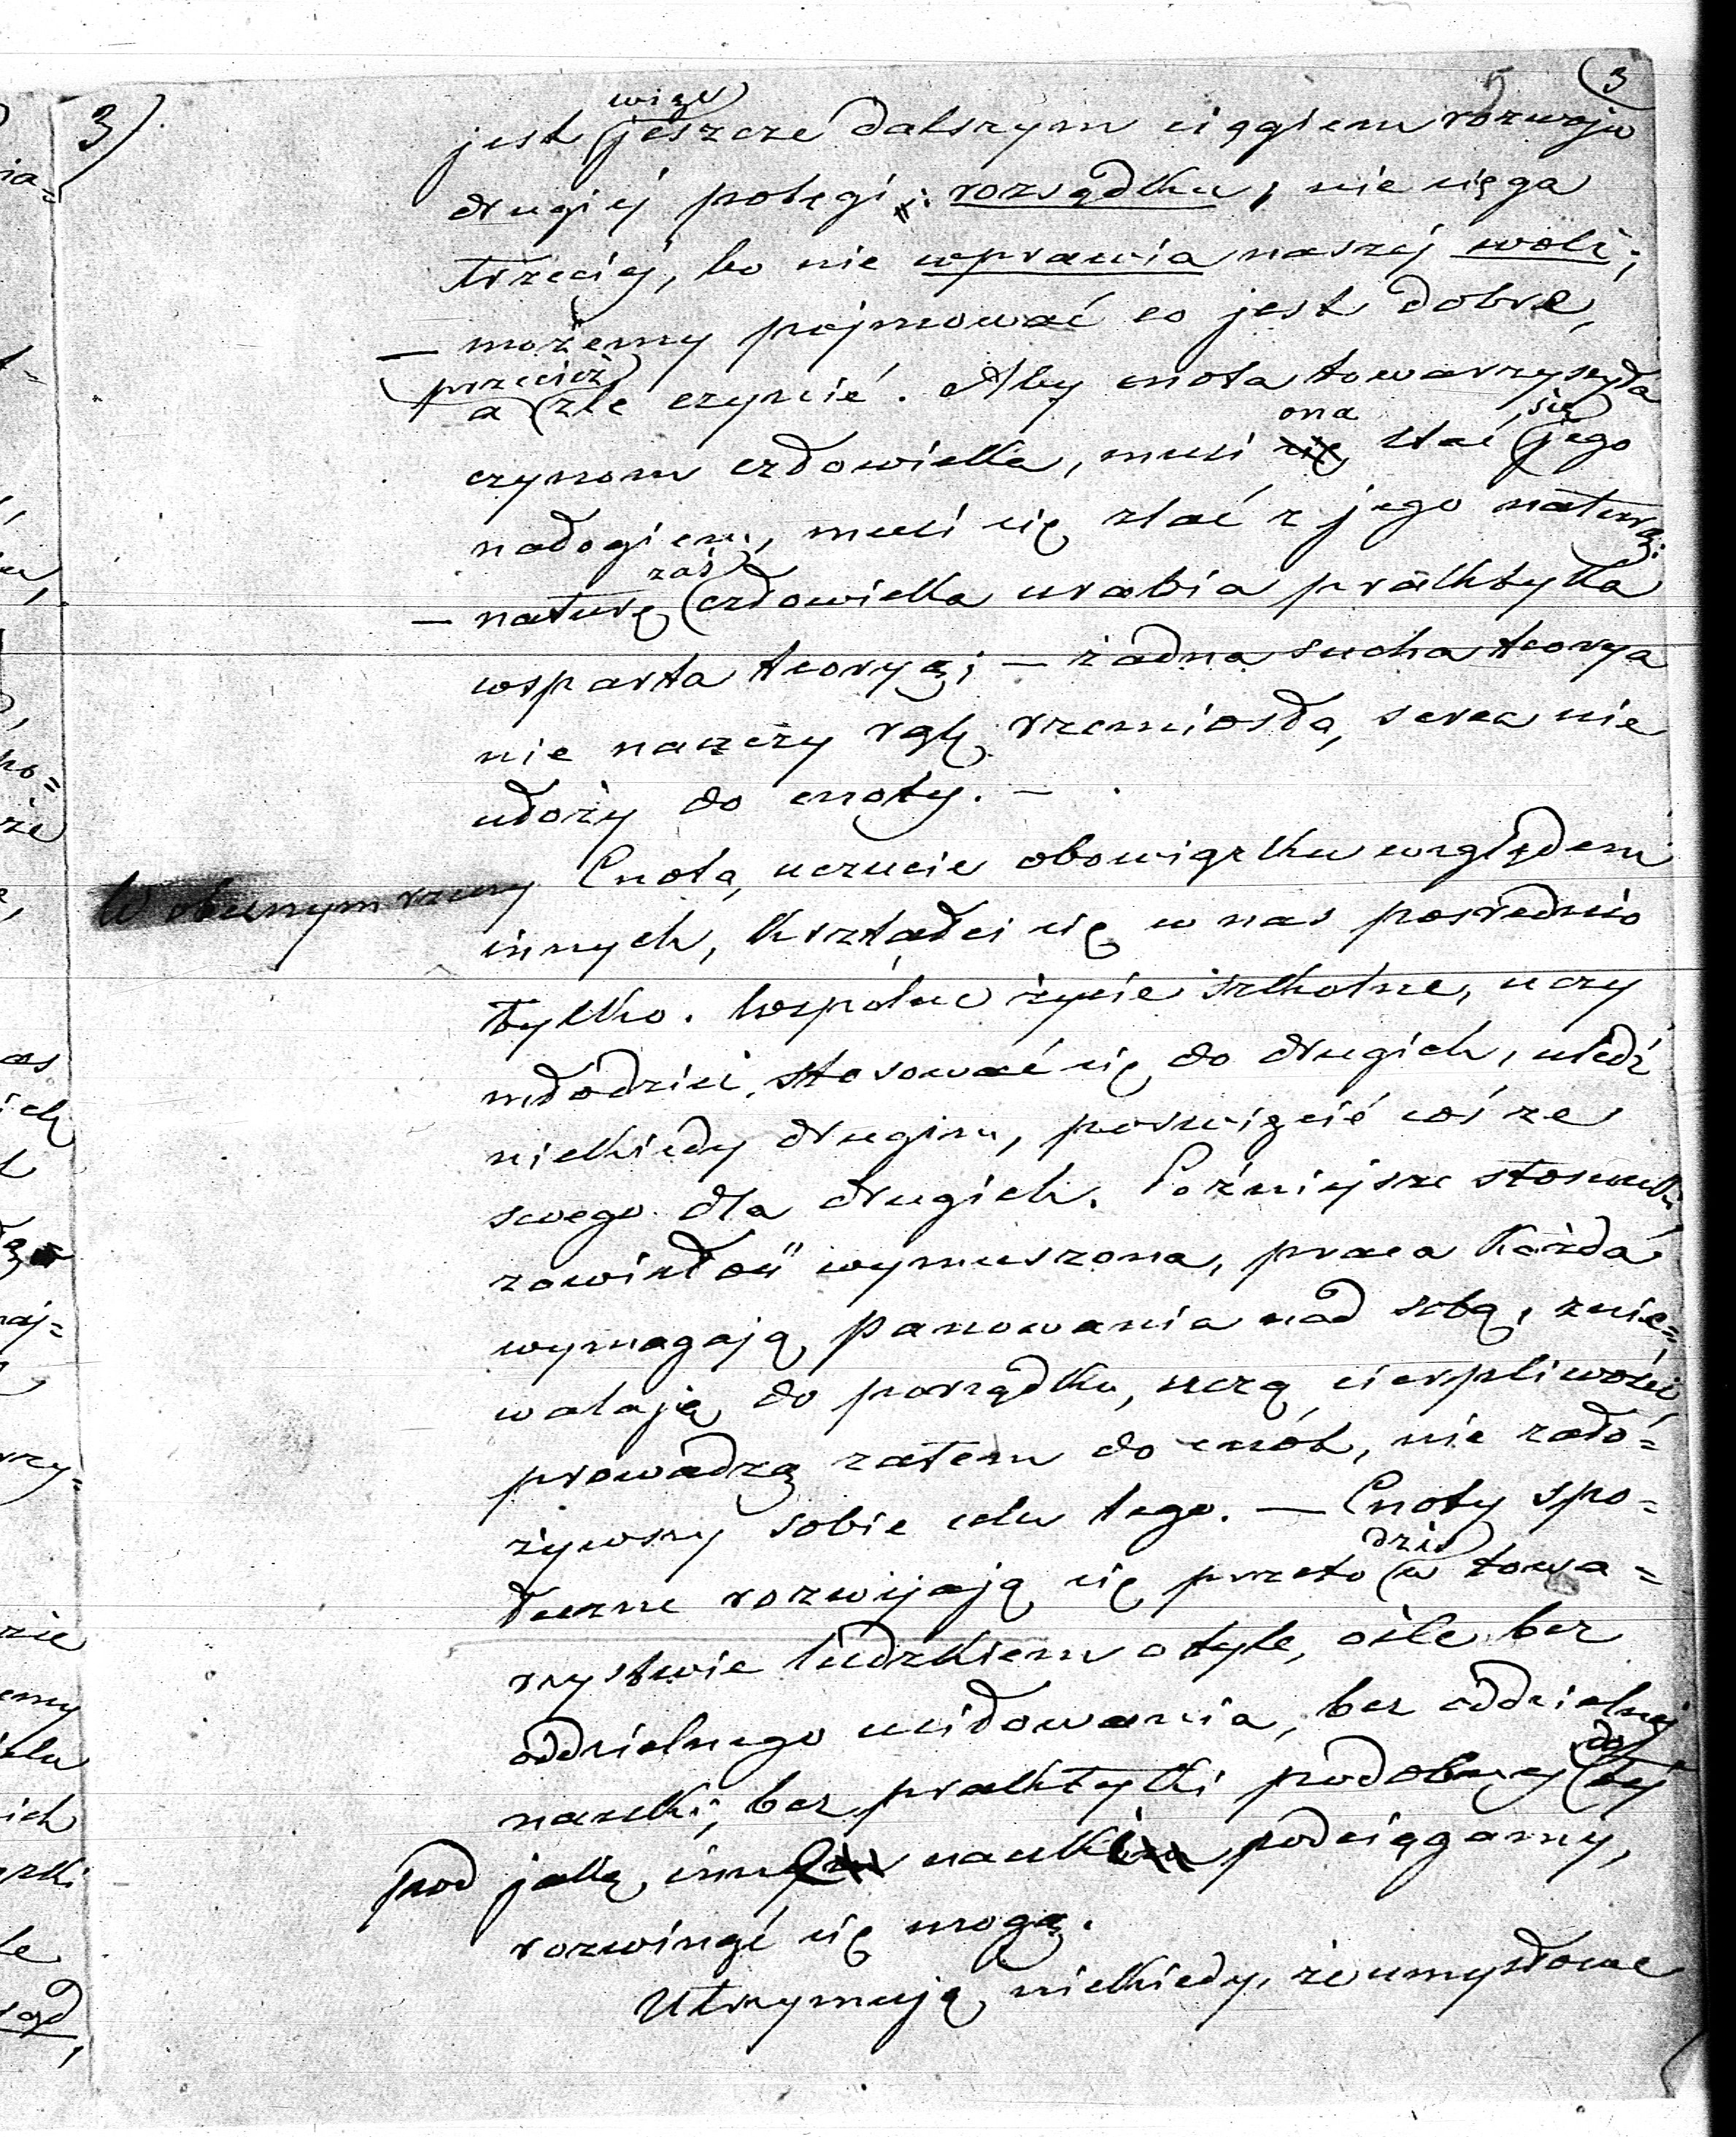 3
3)
więc
jest jeszcze dalszym ciągiem rozwoju
drugiej potęgi: rozsądku, nie sięga
trzeciej, bo nie wprawia naszej woli;
— możemy pojmować co jest dobre,
przecież
a źle czynić. Aby cnota towarzyszyła
ona się
czynom człowieka, musi się stać jego
nałogiem, musi się zlać z jego naturą:
zaś
— naturę człowieka urabia praktyka
wsparta teoryą; — żadna sucha teorya
nie nauczy rąk rzemiosła, serca nie
ułoży do cnoty. —
Cnota, uczucie obowiązku względem
W obecnym rzeczy
innych, kształci się w nas pośrednio
tylko. Wspólne życie szkolne, uczy
młodzież stosować się do drugich, uledz
niekiedy drugim, poswięcić coś ze
swego dla drugich. Poźniejsze stosunki
zawisłość wymuszona, praca każda
wymagają panowania nad sobą, znie=
walają do porządku, uczą cierpliwości,
prowadzą zatem do cnót, nie zało=
żywszy sobie celu tego. — Cnoty spo=
dziś
łeczne rozwijają się przeto w towa=
rzystwie ludzkiem o tyle, o ile bez
oddzielnego usiłowania, bez oddzielnej
do
nauki, bez praktyki podobnej tej
pod jaką inną naukę podciągamy,
rozwinąć się mogą.
Utrzymują niekiedy, że umysłowe